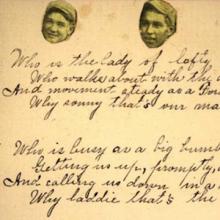 Who is the lady of lofty
Who walks about with the
And movement steady as a
Why sonny that's our
Who is busy as a big bumb
Getting us up, promptly
And calling us down in a
Why laddie that's the